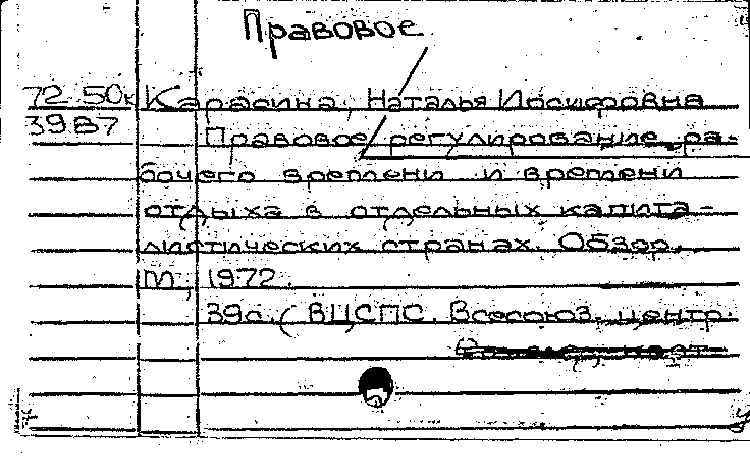 Правовое
72-50к Карасина, Наталья Иосифовна
3987 Правовое регулирование ра-
бочего времени и времени
отдыха в отдельных капита-
листических странах. Обзор.
М., 1972.
39с. (ВЦСПС. Всесоюз. центр.